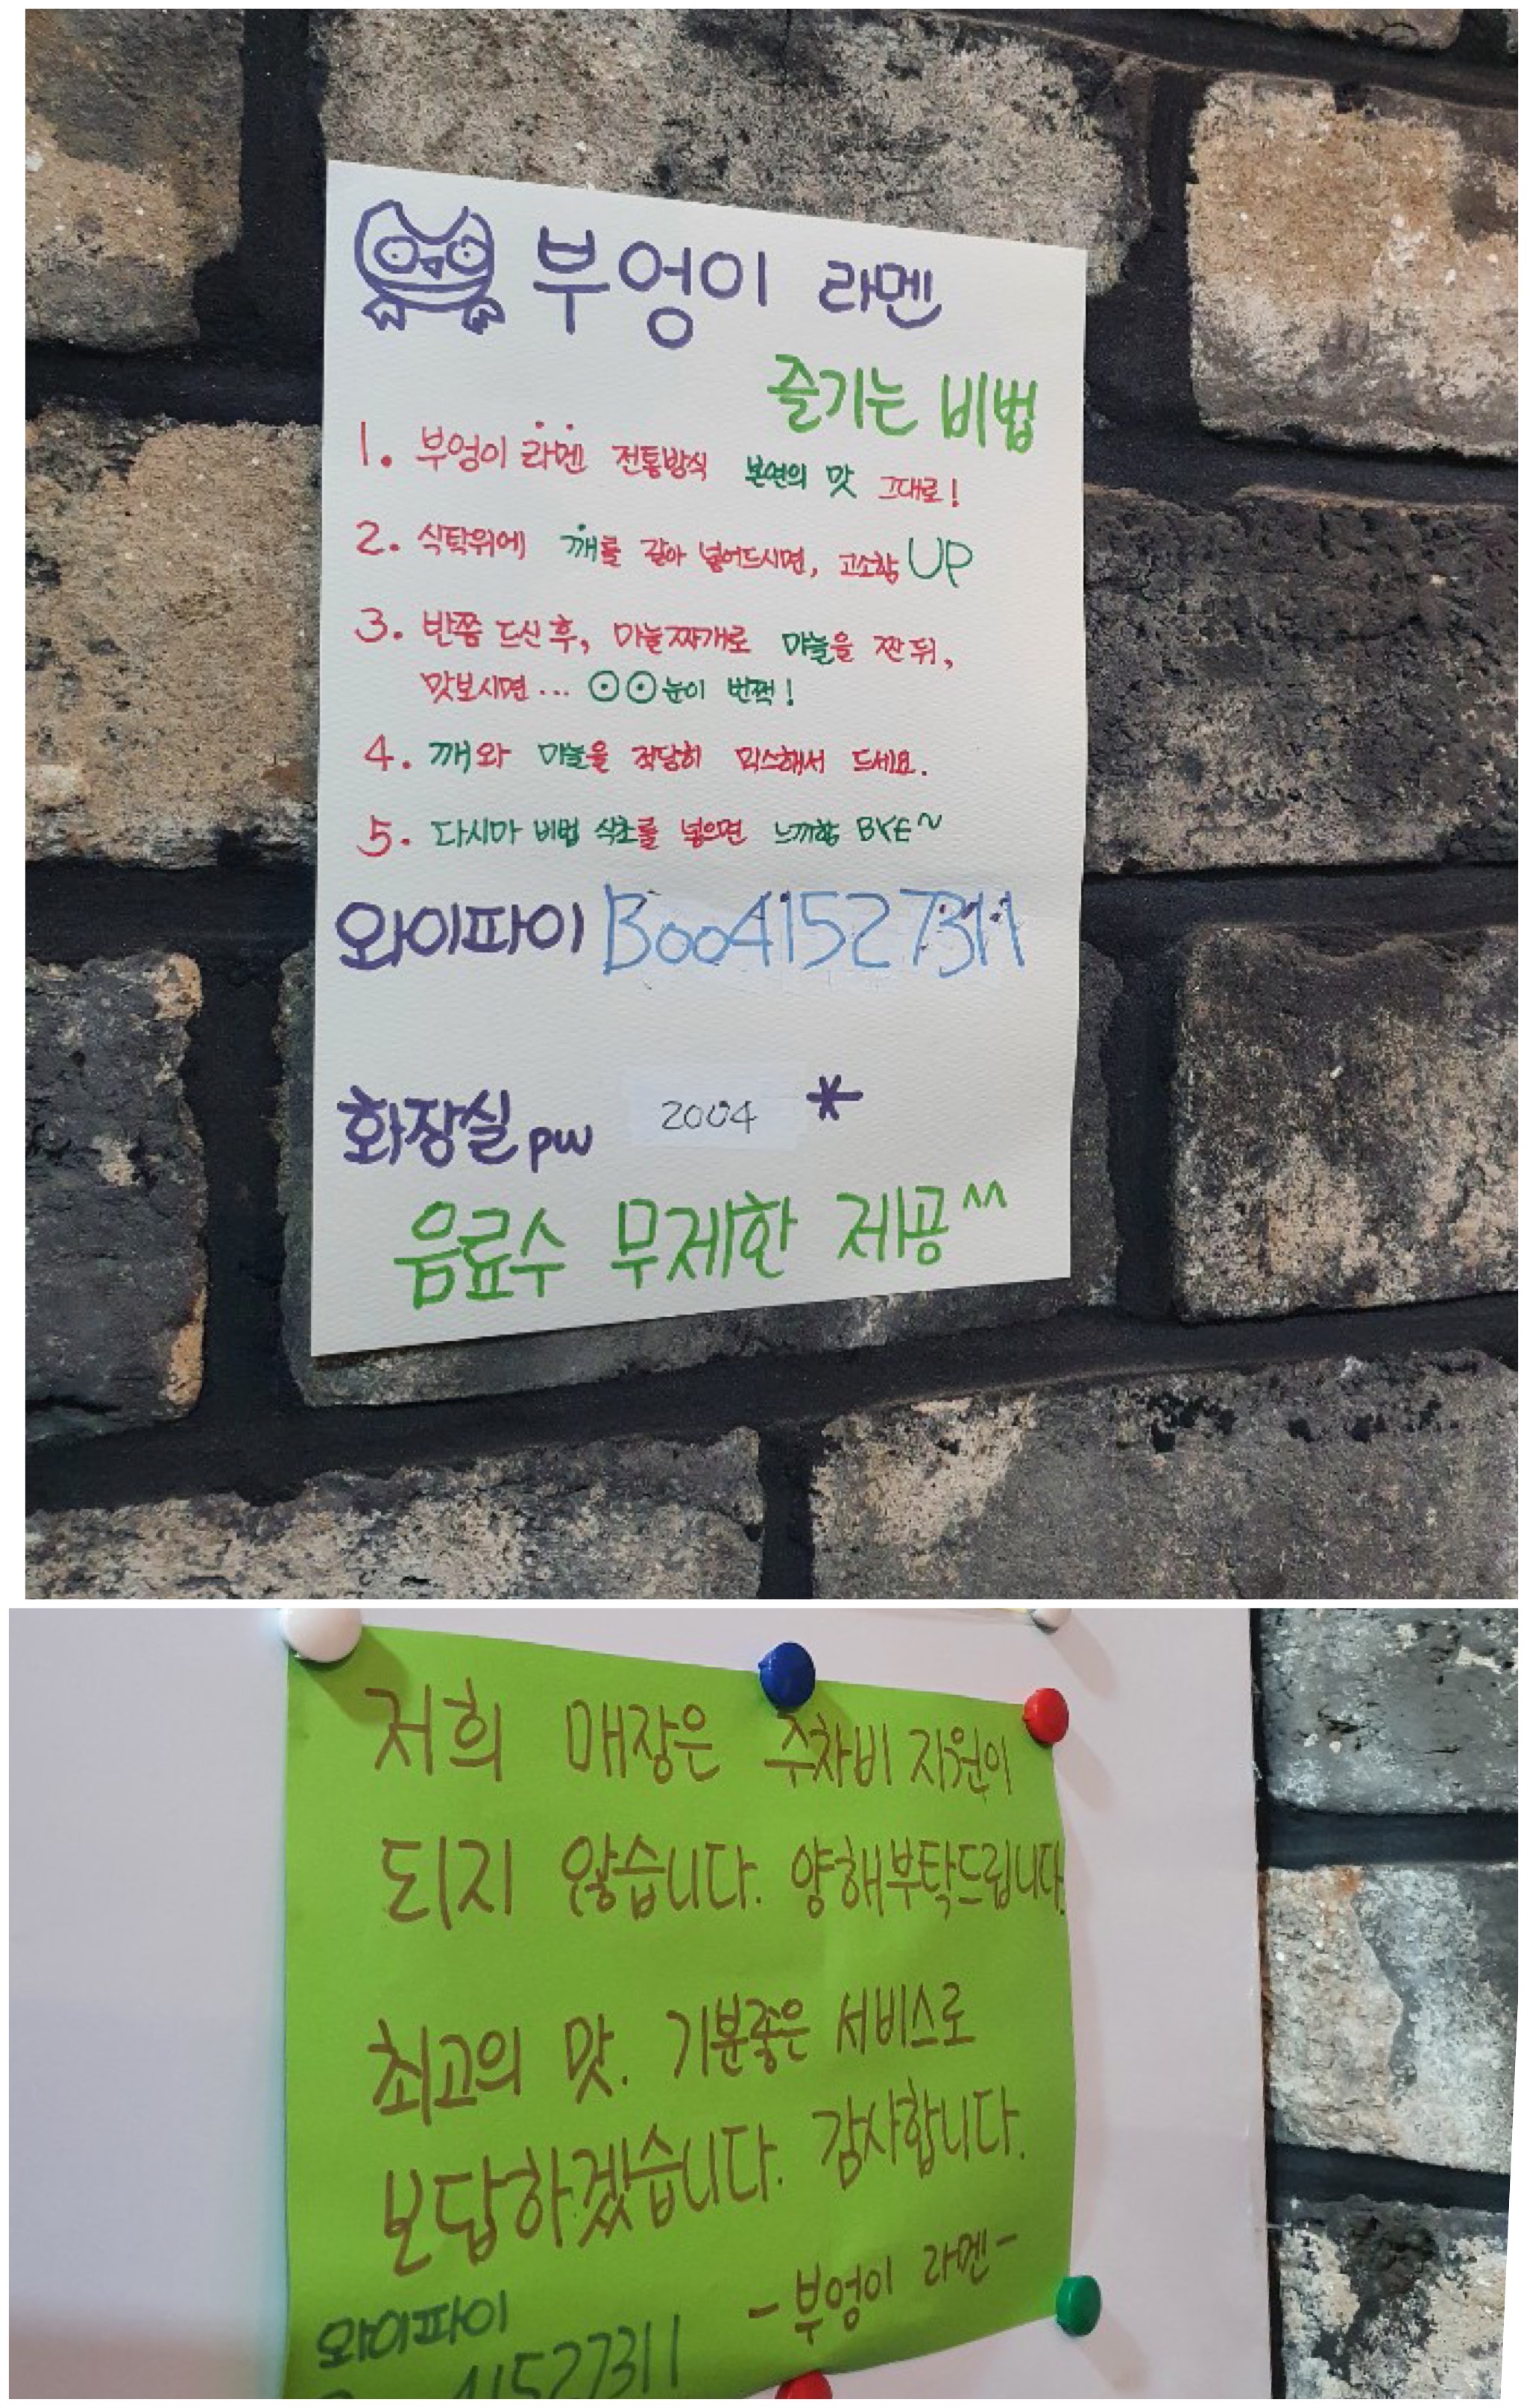 부엉이 라멘
즐기는 비법
1. 부엉이 라멘 전통방식 본연의 맛 그대로!
2. 식탁위에 깨를 갈아 넣어드시면, 고소함 UP
3. 반쯤 드신 후, 마늘짜개로 마늘을 짠 뒤,
맛보시면... ⊙⊙눈이 번쩍!
4. 깨와 마늘을 적당히 믹스해서 드세요.
5. 다시마 비법 식초를 넣으면 느끼함 BYE~
와이파이 Boo41527311
화장실 pw 2004 *
음료수 무제한 제공^^
저희 매장은 주차비 지원이
되지 않습니다. 양해부탁드립니다.
최고의 맛. 기분좋은 서비스로
보답하겠습니다. 감사합니다.
-부엉이 라멘-
와이파이
41527311